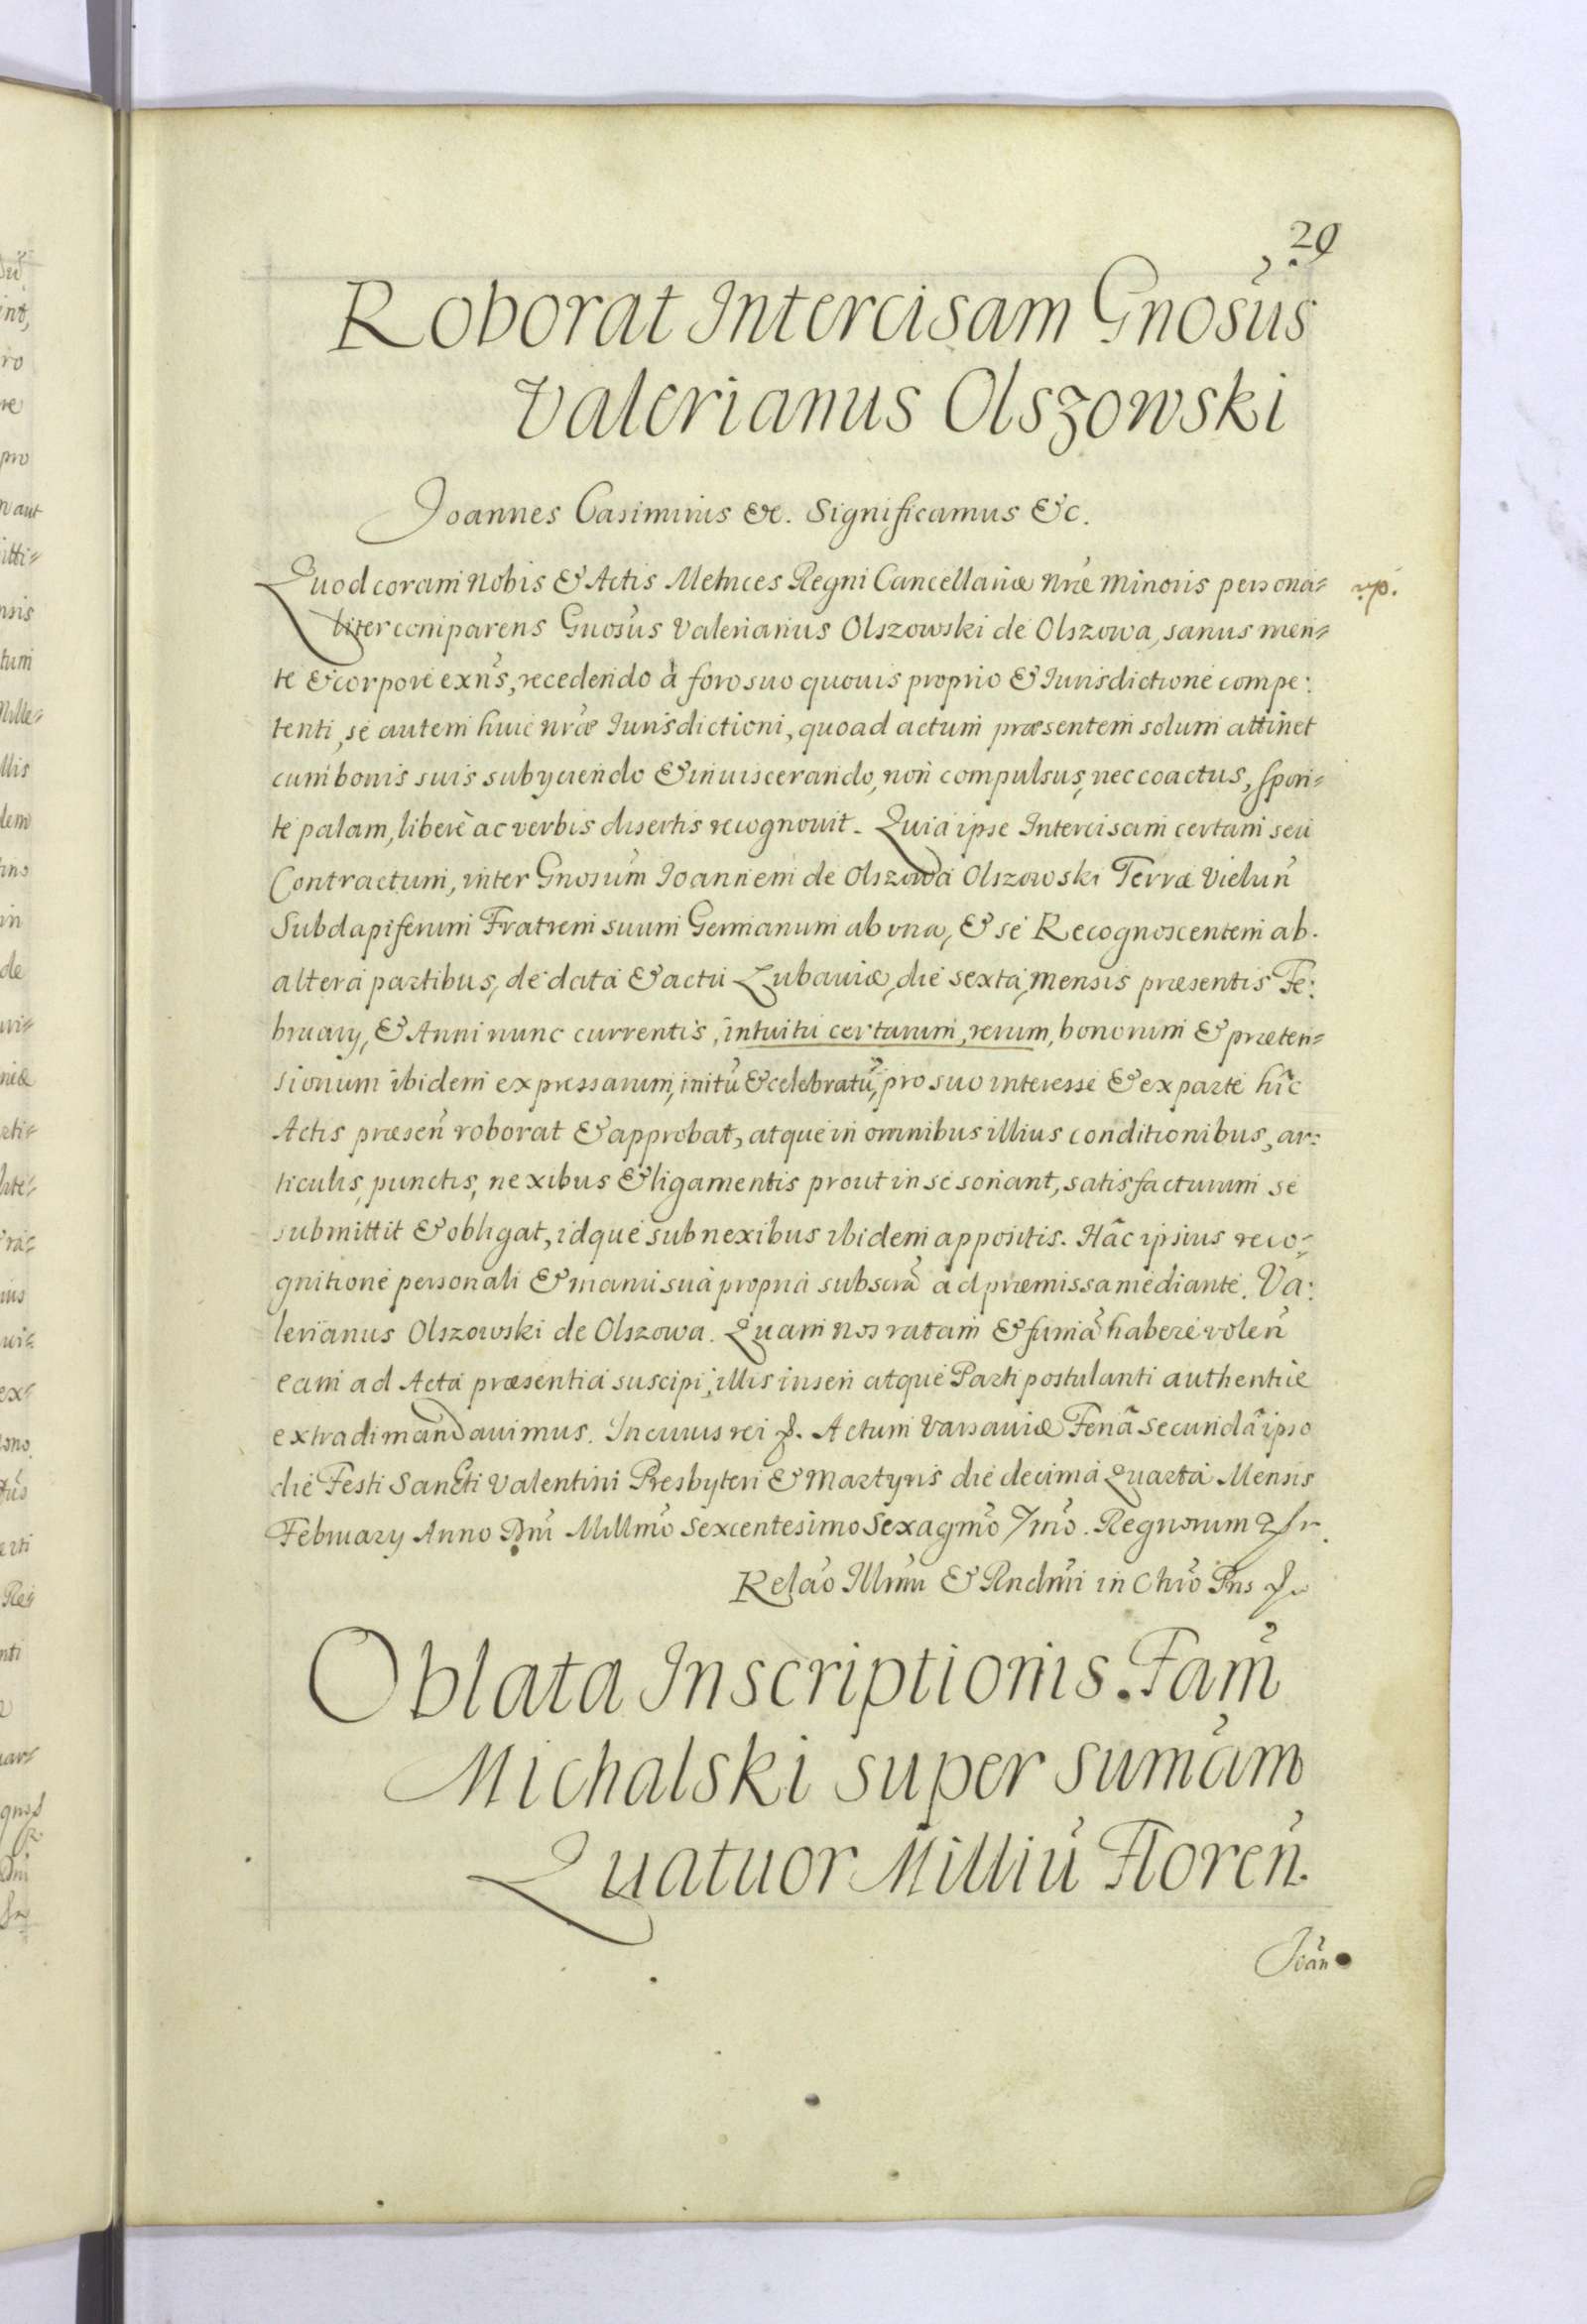 29
Roborat Intercisam Gnosũs
Valerianus Olszowski
Joannes Casimirus &c. Significamus &c.
Quod coram Nobis & Actis Metrices Regni Cancellariæ Nræ Minoris persona=
liter comparens Gnosũs Valerianus Olszowski de Olszowa, sanus men=
te & corpore exñs, recedendo à foro suo quovis proprio & Iurisdictione compe:
tenti, se autem huic nræ Iurisdictioni, quoad actum præsentem solum attinet
cum bonis suis subyciendo & inuiscerando, non compulsus, nec coactus, spon=
te palam, liberè ac verbis disertis recognovit. Quia ipse Intercisam certam seu
Contractum, inter Gnosũm Joannem de Olszowa Olszowski Terræ Vieluñ
Subdapiferum Fratrem suum Germanum ab vna, & se Recognoscentem ab.
altera partibus, de data & actu Lubaviæ, die sexta, mensis præsentis Fe:
bruary, & Anni nunc currentis, intuitu certarum, rerum, bonorum & præten=
sionum ibidem expressarum, initũ & celebratũ, pro suo interesse & ex parte hic
Actis præseñ roborat & approbat, atque in omnibus illius conditionibus, ar:
ticulis, punctis, nexibus & ligamentis prout in se sonant, satisfacturum se
submittit & obligat, idque sub nexibus ibidem appositis. Hâc ipsius reco=
gnitione personali & manu suâ propria subscrã ad præmissa mediante. Va:
lerianus Olszowski de Olszowa. Quam nos ratam & firmã habere voleñ
eam ad Acta præsentia suscipi, illis inseri atque Parti postulanti authentice
extradi mandavimus. In cuius rei &. Actum Varsaviæ Feriâ Secundâ ipso
die Festi Sancti Valentini Presbyteri & Martyris die decima Quarta Mensis
February Anno Dñi Millmõ Sexcentesimo Sexagmõ 7mõ. Regnorum
Relaõ Illmi & Rndmi in Chrõ Pris &
Oblata Inscriptionis. Fam̃
Michalski super Sumam
Quatuor Milliũ Floreñ.
Joan